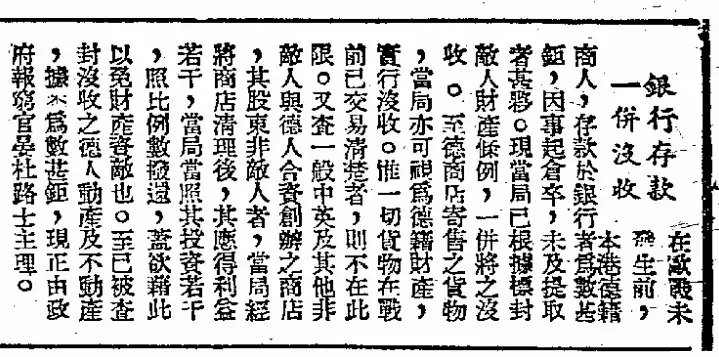 銀行存款
一併沒收
在歐戰未
發生前，
本港德籍
商人，存款於銀行者爲數甚
鉅，因事起倉卒，未及提取
者甚夥。現當局已根據標封
敵人財產條例，一併將之沒
收。至德商店寄售之貨物
，當局亦可視爲德籍財產，
實行沒收。惟一切貨物在戰
前已交易清楚者，則不在此
限。又查一般中英及其他非
敵人與德人合資創辦之商店
，其股東非敵人者，當局經
將商店清理後，其應得利益
若干，當局當照其投資若干
，照比例數撥還，蓋欲藉此
以免財產資敵也。至已被查
封沒收之德人動產及不動產
，據爲數甚鉅，現正由政
府報窮官晏杜路士主理。